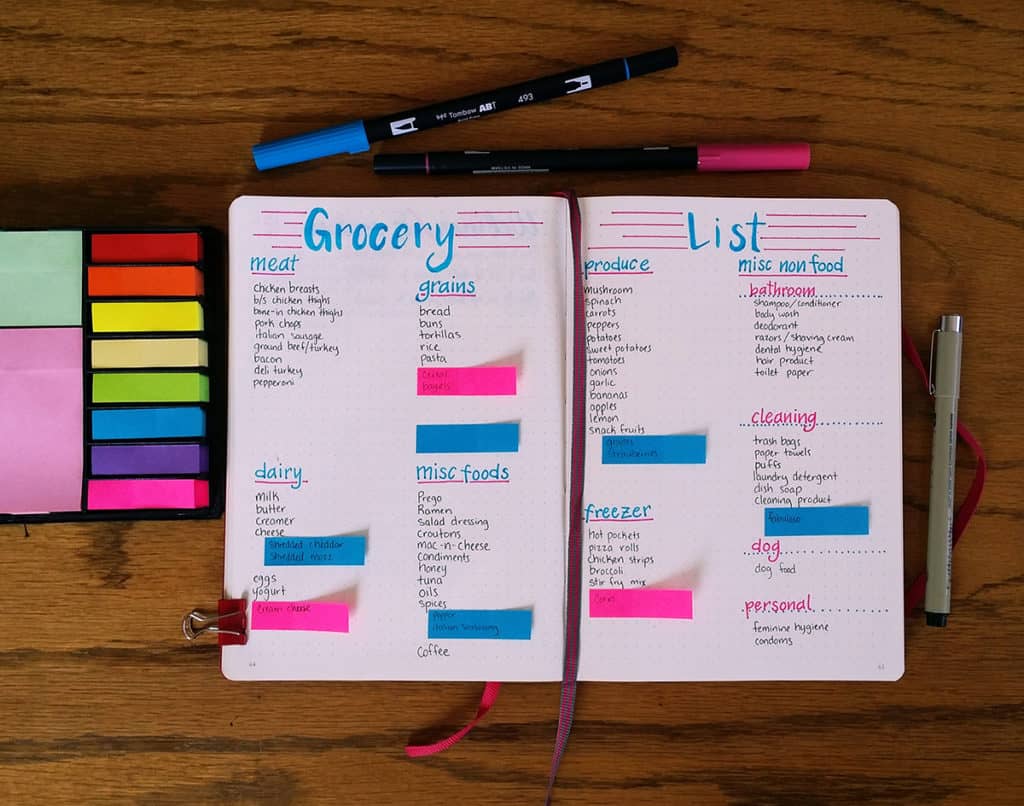 Tombow ABT
493
Grocery
meat
chicken breasts
b/s chicken thighs
bone-in chicken thighs
pork chops
italian sausage
ground beef/turkey
bacon
deli turkey
pepperoni
grains
bread
buns
tortillas
rice
pasta
cereal
bagels
dairy
milk
butter
creamer
cheese
shredded cheddar
shredded mozz
eggs
yogurt
cream cheese
misc foods
Prego
Ramen
salad dressing
croutons
mac-n-cheese
Condiments
honey
tuna
oils
spices
pepper
italian seasoning
Coffee
List
produce
mushroom
spinach
carrots
peppers
potatoes
sweet potatoes
tomatoes
onions
garlic
bananas
apples
lemon
snack fruits
grapes
strawberries
freezer
hot pockets
pizza rolls
chicken strips
broccoli
stir fry mix
corn
misc non food
bathroom
shampoo/conditioner
body wash
deodorant
razors/shaving cream
dental hygiene
hair product
toilet paper
cleaning
trash bags
paper towels
puffs
laundry detergent
dish soap
cleaning product
fabuloso
dog
dog food
personal
feminine hygiene
condoms